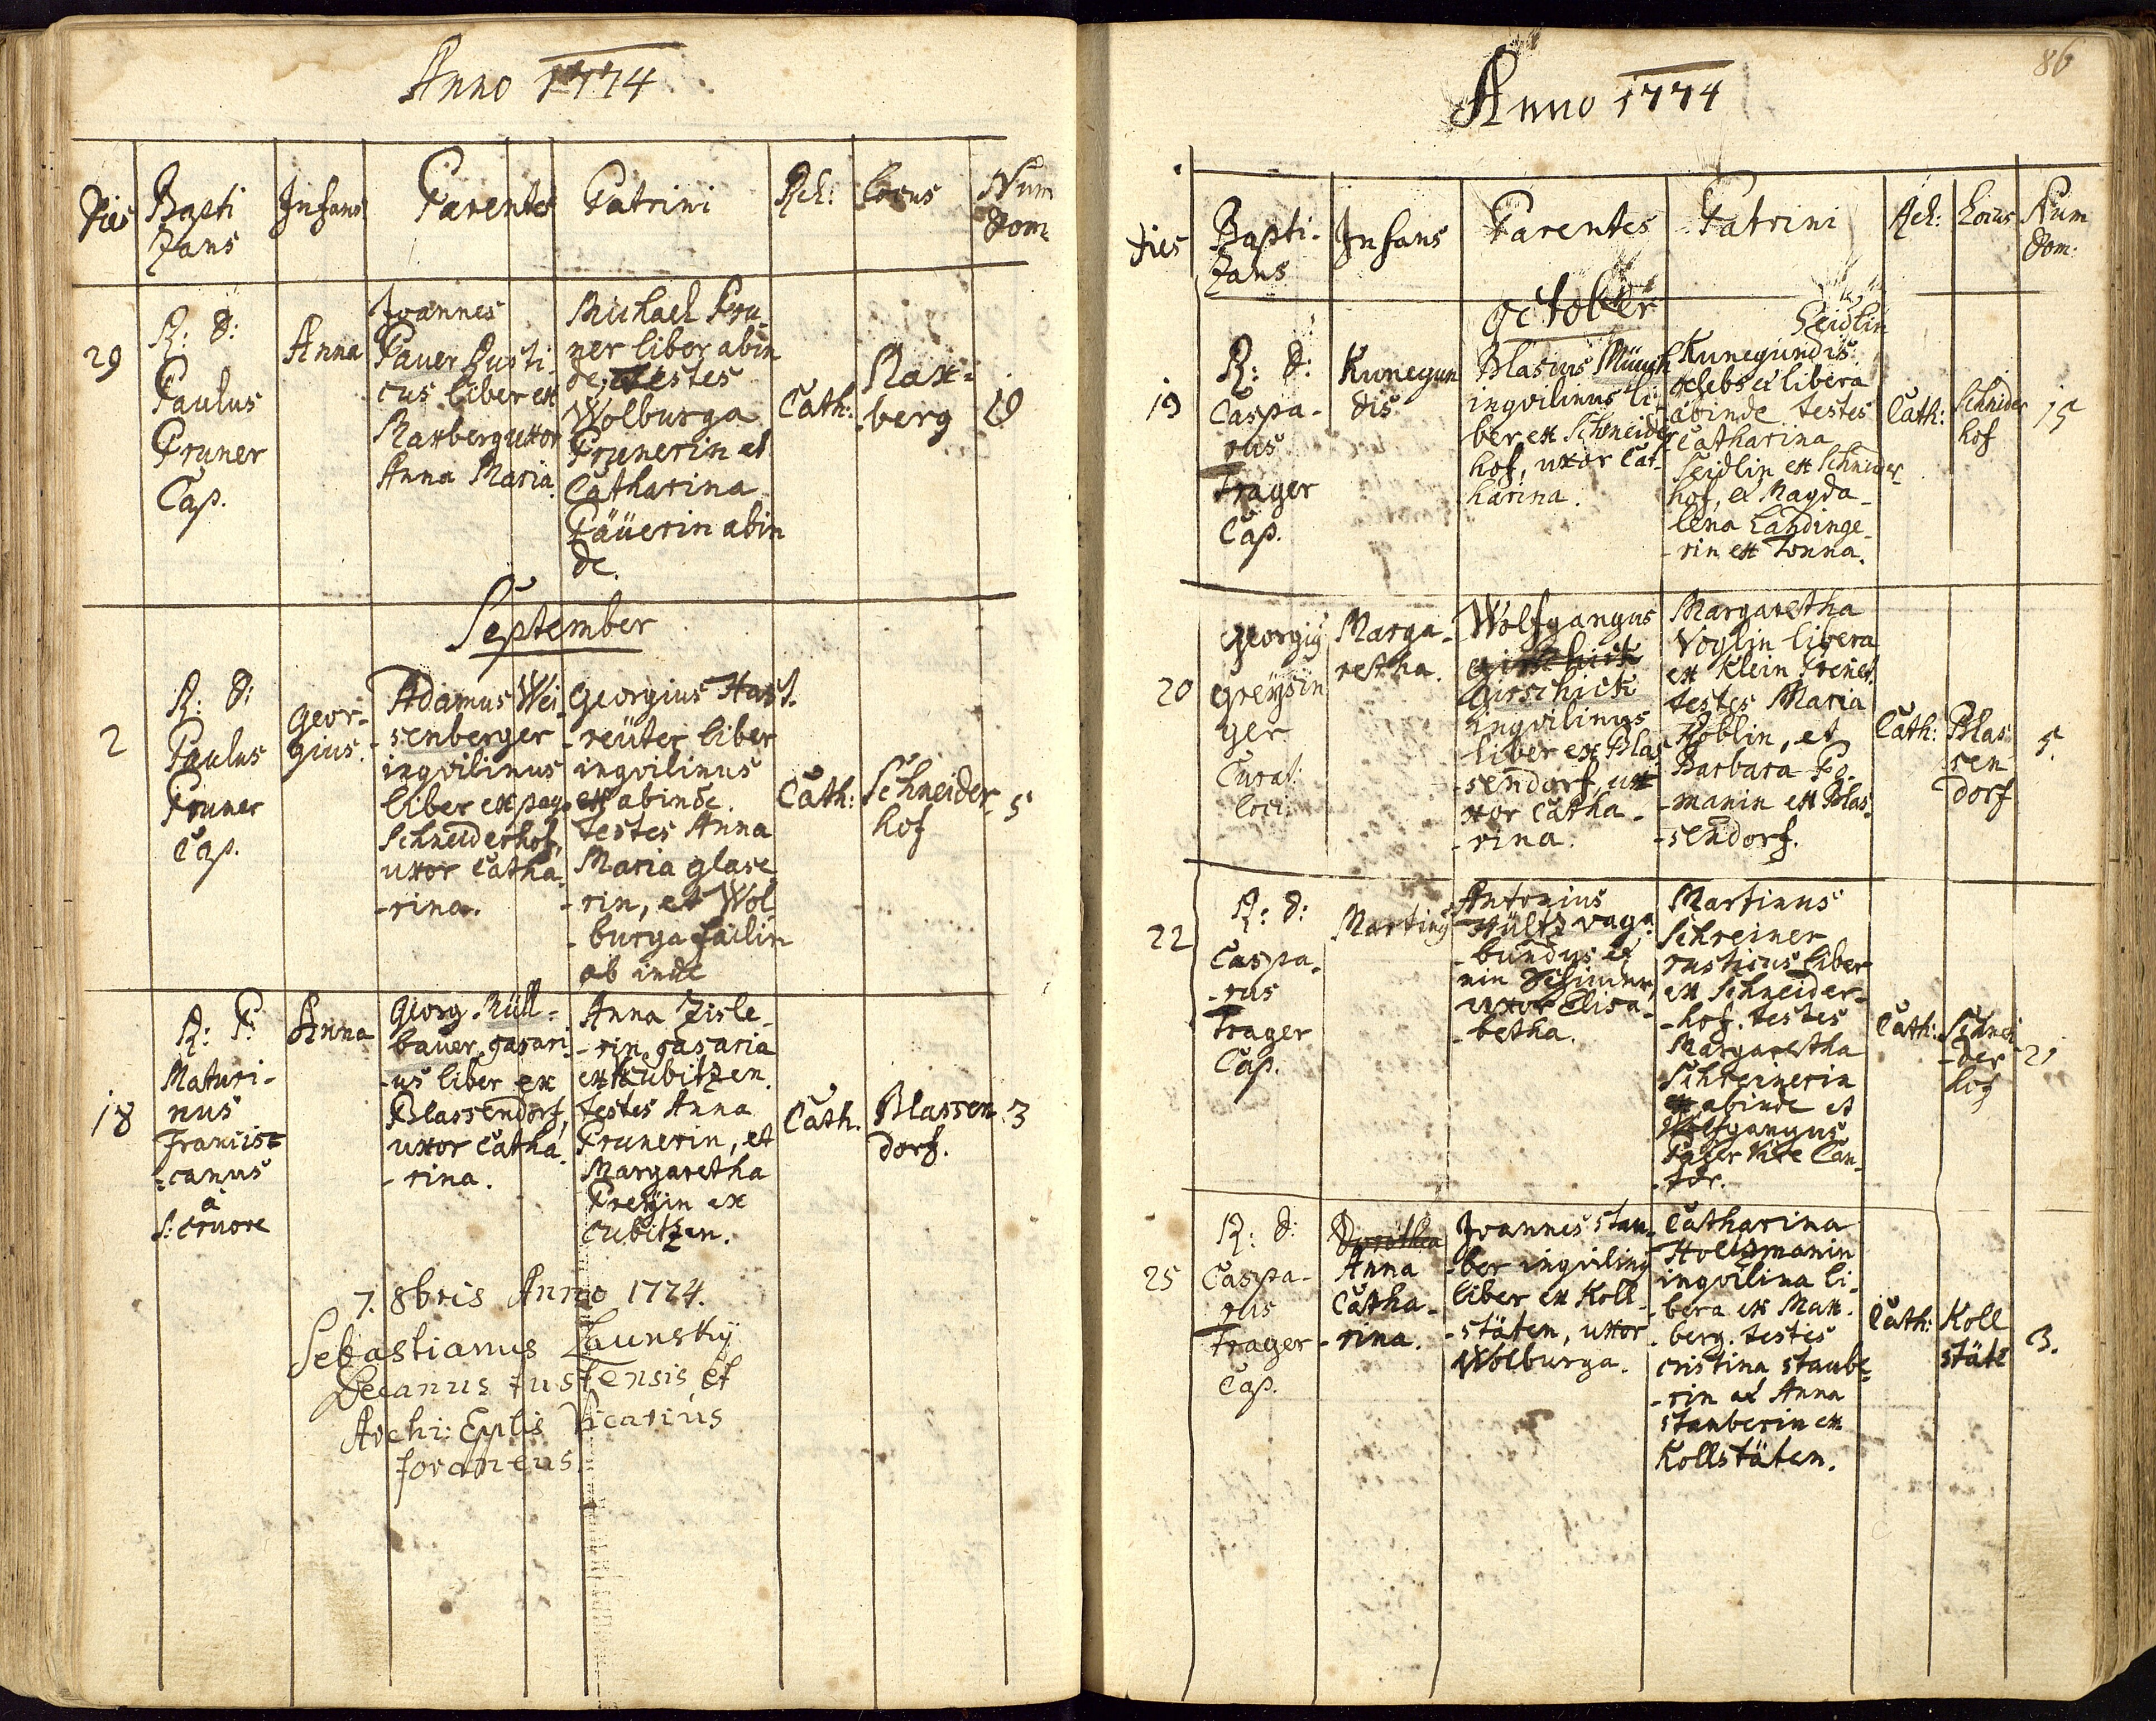 Anno 1774
Dies
Bapti
zans
Infans
Parentes
Patrini
Rel:
Locus
Num
Dom:
29
R: D:
Paulus
Pruner
Cap.
Anna
Joannes
Pauer Rusti
cus liber ex
Maxberg uxor
Anna Maria
Michael Pru
ner liber abin
de, testes
Wolburga
Prunerin et
Catharina
Päüerin abin
de.
Cath:
Max=
berg
19
September
2
R: D:
Paulus
Pruner
Cap.
Geor-
gius.
Adamus Wei
-senberger
inqvilinus
liber ex pago
Schneiderhof,
uxor Catha
-rina.
Georgius Hast.
-reüter liber
inqvilinus
ex abinde.
testes Anna
Maria glase
-rin, et Wol
-burga failin
ab inde
Cath:
Schneider
hof
5
18
R: P:
Maturi-
nus
Francis=
=canus
à
S: Cruore
Anna
Georg. Müll=
bauer, casari
-us liber ex
Blassendorf,
uxor Catha
-rina.
Anna Zisle
-rin casaria
ex Kubitzen.
testes Anna
Prunerin, et
Margaretha
Preÿin ex
Cubitzen.
Cath.
Blassen
dorf.
3
7. 8bris Anno 1774.
Sebastianus Launsky
Decanus Tustensis et
Archi: Epplis Vicarius
foraneus
86
Anno 1774
Dies
Bapti-
zans
Infans
Parentes
Patrini
Rel:
Locus
Num
Dom:
October
19
R: D:
Caspa-
rus
Trager
Cap.
Kunegun
dis
Blasius Münch
inqvilinus li-
ber ex Schneider
hof, uxor Cat-
harina.
Seidlin
Kunegundis
celebs et libera
abinde testes
Catharina
Seidlin ex Schneider
hof, et Magda-
lena Landinge-
-rin ex Donna.
Cath:
Schnider
hof
15
20
Georgiy
Greÿsin
ger
Curat.
loci.
Marga-
retha.
Wolfgangus
Girschick
inqvilinus
liber ex Blas
-sendorf, ux
xor Catha-
-rina.
Margaretha
Voglin libera
ex Klein Prenet.
testes Maria
Koblin, et
Barbara Po-
-manin ex Blas
-sendorf.
Cath:
Blas
sen
dorf
5.
22
R: D:
Caspa-
-rus
Trager
Cap.
Martiny
Antonius
Hültz vaga
-bundus et
uxor Elisa-
-betha.
Martinus
Schreiner
rusticus liber
ex Schneider-
-hof. testes
Margaretha
Schreinerin
abinde et
Wolfgangus
Can-
-tor.
Cath:
Schnei
-der
hof
21
25
R: D:
Caspa-
rus
Trager
Cap.
Dorothea
Anna
Catha-
-rina.
Joannes stau-
-ber inqviliny
liber ex Koll
-stäten, uxor
Wolburga.
Catharina
Holtzmanin
inqvilina li-
-bera ex Max.
berg. testes
Cristina staube
-rin et Anna
stauberin ex
Kollstäten.
Cath:
Koll
stäte
3.